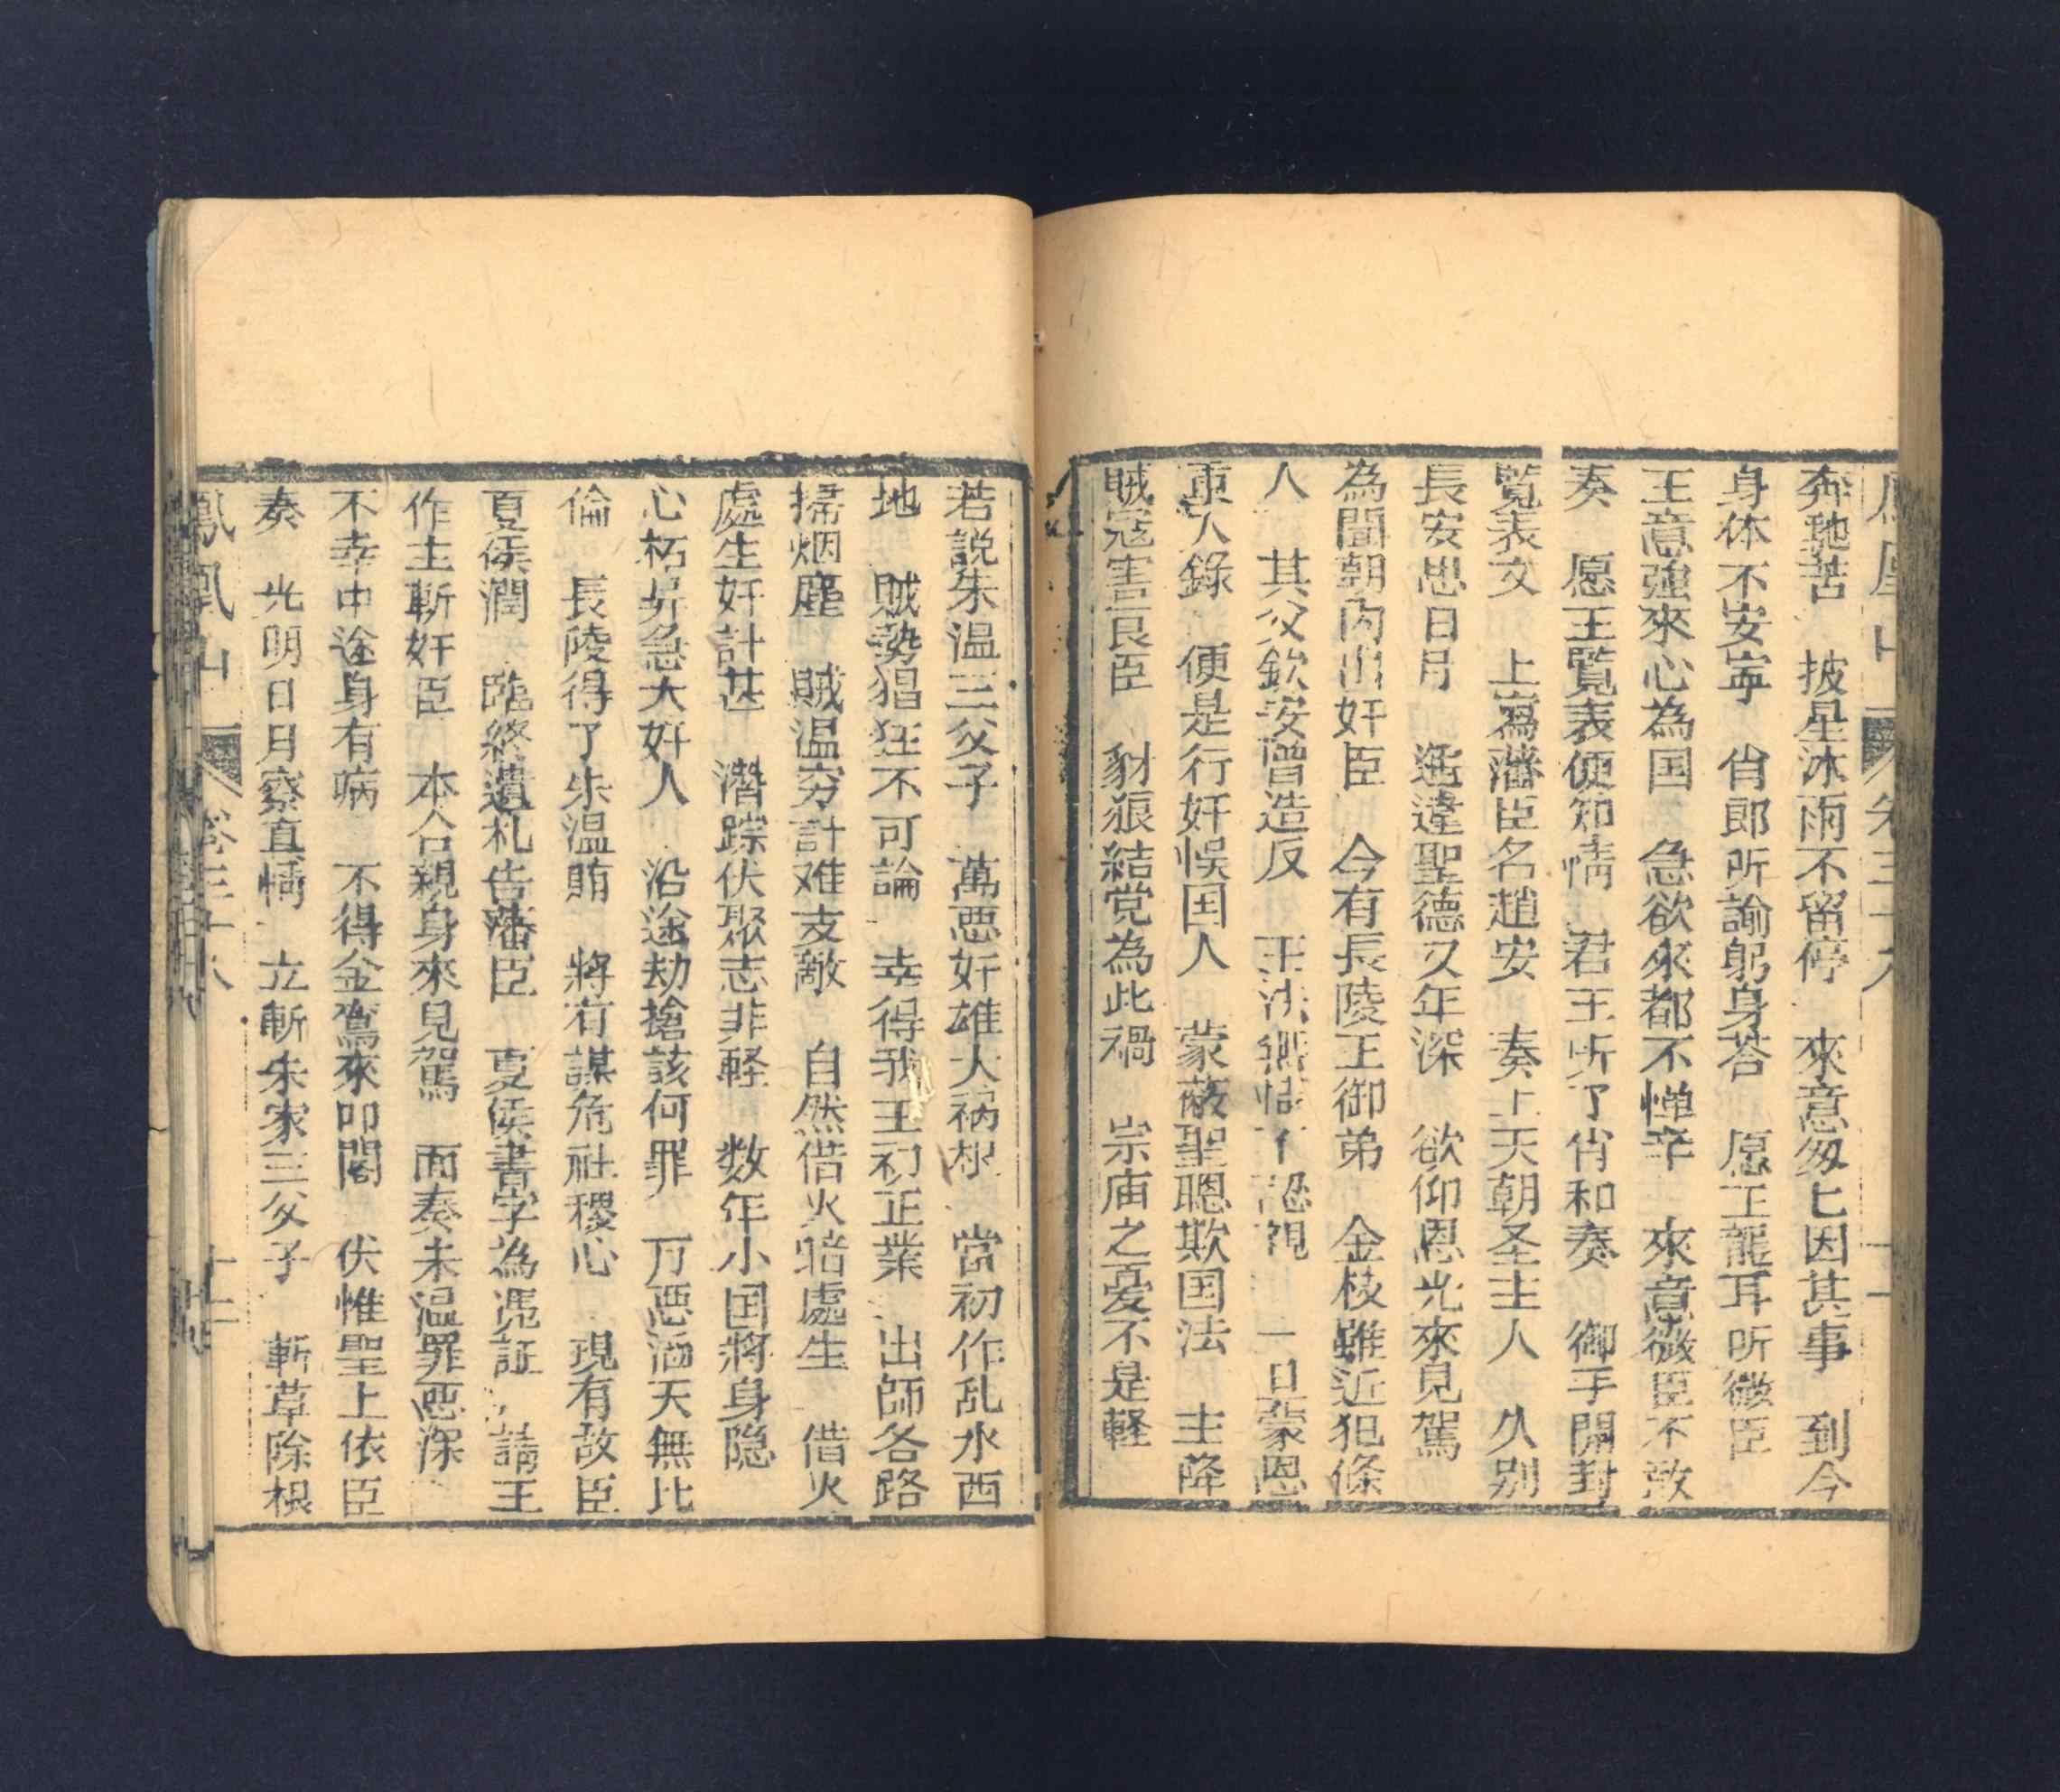 奔馳苦　披星沐雨不留停　來意匆匕因其事　到今
身体不安寕　肖郎所諭躬身荅　愿王龍耳听微臣
王意強來心為国　急欲來都不惮辛　來意微臣不敢
奏　愿王覧表便知情　君王听了肖和奏　御手開封
覧表文　上寫藩臣名趙安　奏上天朝圣主人　久别
長安思日月　遥違聖德又年深　欲仰恩光來見駕
為聞朝内出奸臣　今有長陵王御弟　金枝雖近犯條
人　其父欽安曾造反　王法　一旦蒙恩
重入錄　便是行奸悞国人　蒙蔽聖聰欺国法　主降
賊寇害良臣　豺狼結党為此禍　崇庙之憂不是軽
若說朱温三父子　萬惡奸雄大禍根　當初作乱水西
地　賊勢猖狂不可論　幸得我王初正業　出師各路
掃烟塵　賊温窮計难支敵　自然借火暗處生　借火
處生奸計甚　潛踪伏聚志非軽　数年小国將身隐
心柘昇急大奸人　沿途劫搶該何罪　万惡滔天無比
倫　長陵得了朱温賄　將有謀危社稷心　現有故臣
夏侯潤　臨終遺札告藩臣　夏侯書字為凭証　請王
作主斬奸臣　本合親身來見駕　面奏朱温罪惡深
不幸中途身有病　不得金鸞來叩閽　伏惟聖上依臣
奏　光明日月察直情　立斬朱家三父子　斬草除根
鳳凰山　卷三十八　十二